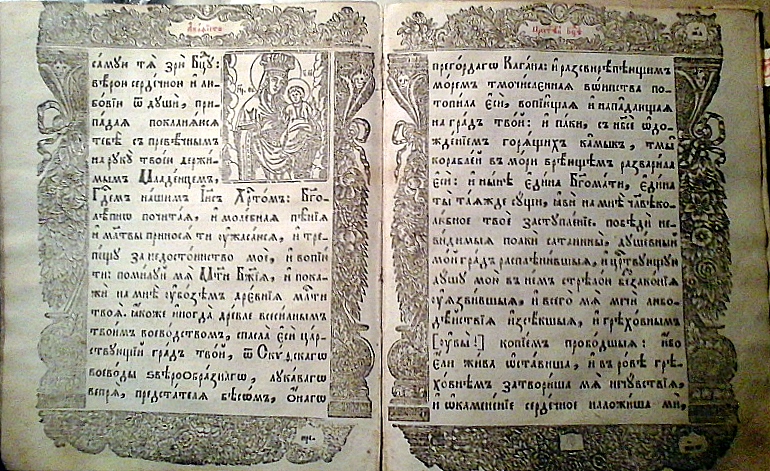 Акаѳїста
самꙋю тѧ зрѧ Бц҃ꙋ:
вѣрою сердечною и лю-
бовїю ѿ дꙋши, при-
падаѧ покланѧюсѧ
тебѣ съ превѣчнымъ
на рꙋкꙋ твоею держи-
мымъ Младенцемъ,
Гдⷭ҇емъ нашимъ Іи҃съ Хрⷭ҇томъ: Бг҃о-
лѣпнѡ почитаѧ, и молебнаѧ пѣнїѧ
и мл҃твы приносѧ ти ꙋжасаюсѧ, и тре-
пещꙋ за недостоинство мое, и вопїю
ти: помилꙋй мѧ Мт҃и Бж҃їѧ, и пока-
жи на мнѣ ꙋбозѣмъ древнїѧ млⷭ҇ти
твоѧ. ꙗкоже иногда древле всесилнымъ
твоимъ воеводствомъ, спасла еси цар-
ствꙋющїй градъ твой, ѿ Скѵѳскагѡ
воеводы ѕвѣрообразнагѡ, лꙋкавагѡ
вепрѧ, предстателѧ бѣсѡмъ, ѻнагѡ
прегордагѡ Кагана: и разсвирѣпѣвшимъ
моремъ тмочисленнаѧ вѡинства по-
топила еси, вопїющаѧ и нападающаѧ
на градъ твой: и паки, съ нб҃се ѡдо-
жденїемъ горѧщихъ камыкъ, тмы
кораблей въ мори врѣющемъ разварила
еси: и нынѣ едина Бг҃омати, едина
ты таѧжде сꙋщи, ꙗви на мнѣ чл҃вѣко-
любное твое застꙋпленїе. побѣди не-
видимыѧ полки сатанины, дꙋшевный
мой градъ расплѣнившыѧ, и црⷭ҇твꙋющꙋю
дꙋшꙋ мою въ немъ стрѣлою беззаконїѧ
ꙋѧзвившыѧ, и всего мѧ мечи любо-
дѣйствїѧ изсѣкшыѧ, и грѣховнымъ
[ꙋвы!] копїемъ прободшыѧ: ибо
еле жива ѡставиша, и въ ровѣ грѣ-
ховнѣмъ затвориша мѧ нечꙋвствїѧ,
и ѡкамененїе сердечное наложиша ми,